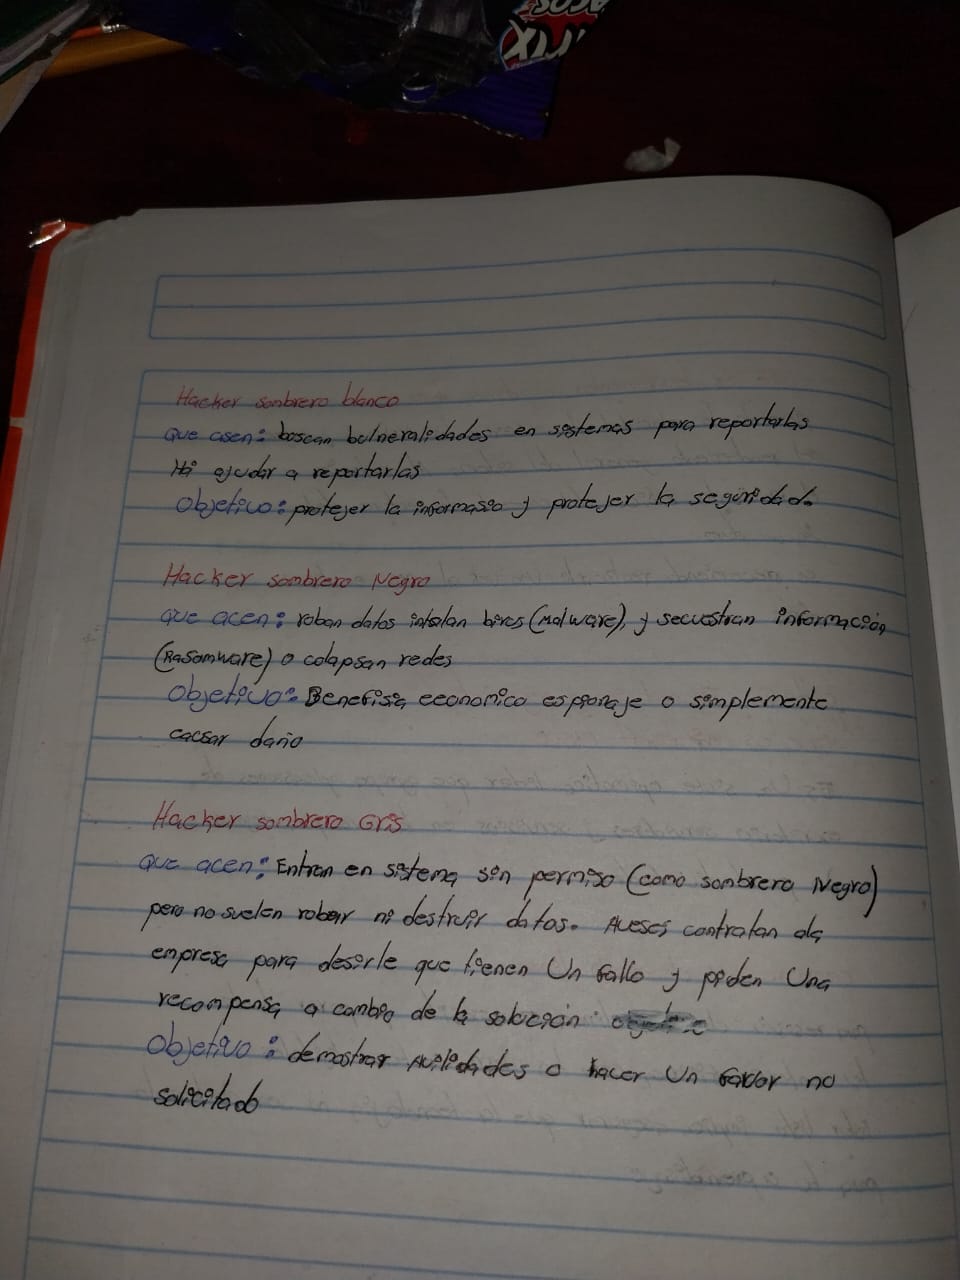 MIX
Hacker sombrero blanco
Que asen: boscan bulneralidades en sistemas para reportarlas
Há ajudar a reportarlas
Objetivo: protejer la informasio y protejer la seguridad.
Hacker sombrero Negro
que acen: roban datos intalan bires (Malware), y secuestran información
(Rasomware) o colapsan redes
Objetivo: Benefisia eeconomico espionaje o simplemente
cacsar daño
Hacker sombrero Gris
que acen: Entran en sistema sin permiso (como sombrero Negro)
pero no suelen robar ni destruir datos. Aveses contratan ala
empresa para desirle que tienen Un fallo y piden Una
recompensa a cambio de la solución
Objetivo: demostrar Avilidades o hacer Un favor no
solicitado